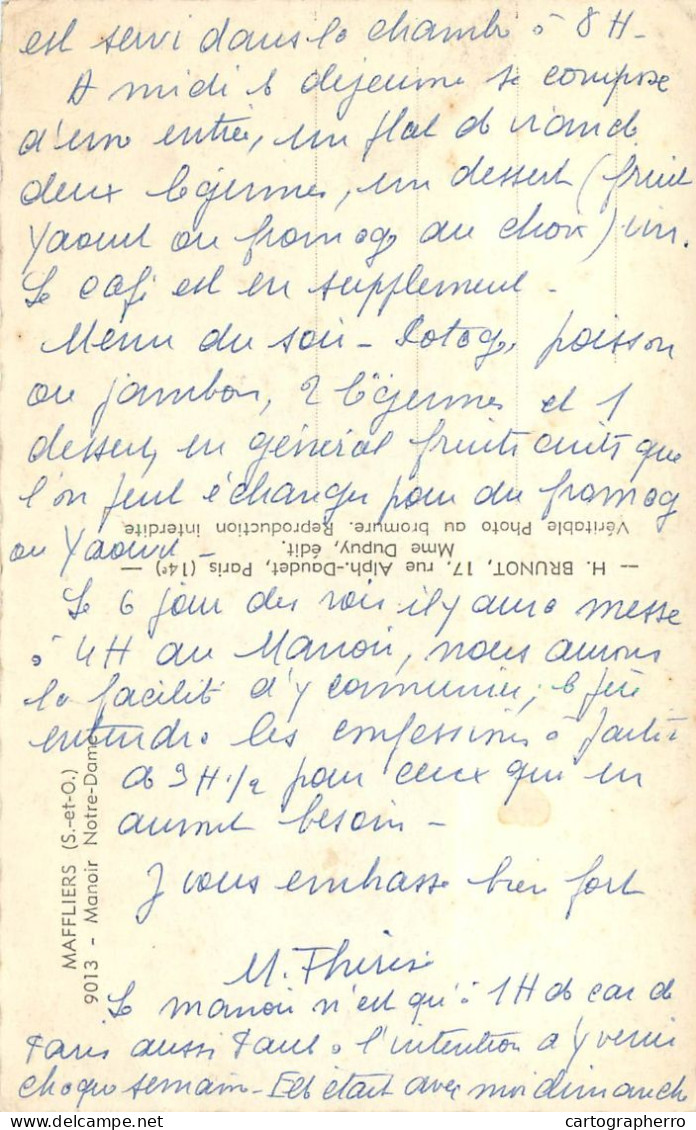 est servi dans la chambre à 8 H -
A midi le déjeuner se compose
d'une entrée, un plat de viande
deux légumes, un dessert (fruit
Yaourt ou fromage au choix) vin.
Le café est en supplément -
Menu du soir - Potage, poisson
ou jambon, 2 légumes et 1
dessert, en général fruits cuits que
l'on peut échanger pour du fromage
ou Yaourt -
Véritable Photo au bromure. Reproduction interdite
Mme Dupuy, édit.
— H. BRUNOT, 17, rue Alph.-Daudet, Paris (14e) —
Le 6 jour des rois il y aura messe
à 4H au Manoir, nous aurons
la facilité d'y communier, le père
entendra les confessions à partir
de 3 H ½ pour ceux qui en
auront besoin -
MAFFLIERS (S.-et-O.)
9013 - Manoir Notre-Dame
Je vous embrasse bien fort
M. Thérèse
Le manoir n'est qu'à 1H de car de
Paris aussi a l'intention d'y venir
chaque semaine - Elle était avec moi dimanche
cartographerro